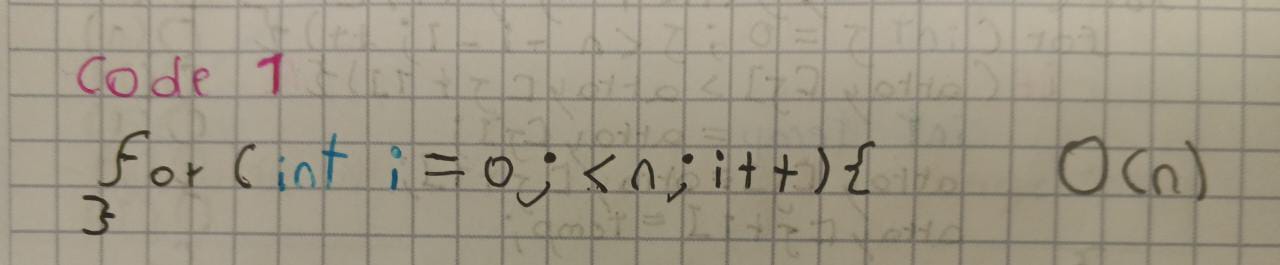 Code 1
for (int i = 0; < n; i++) { O(n)
}